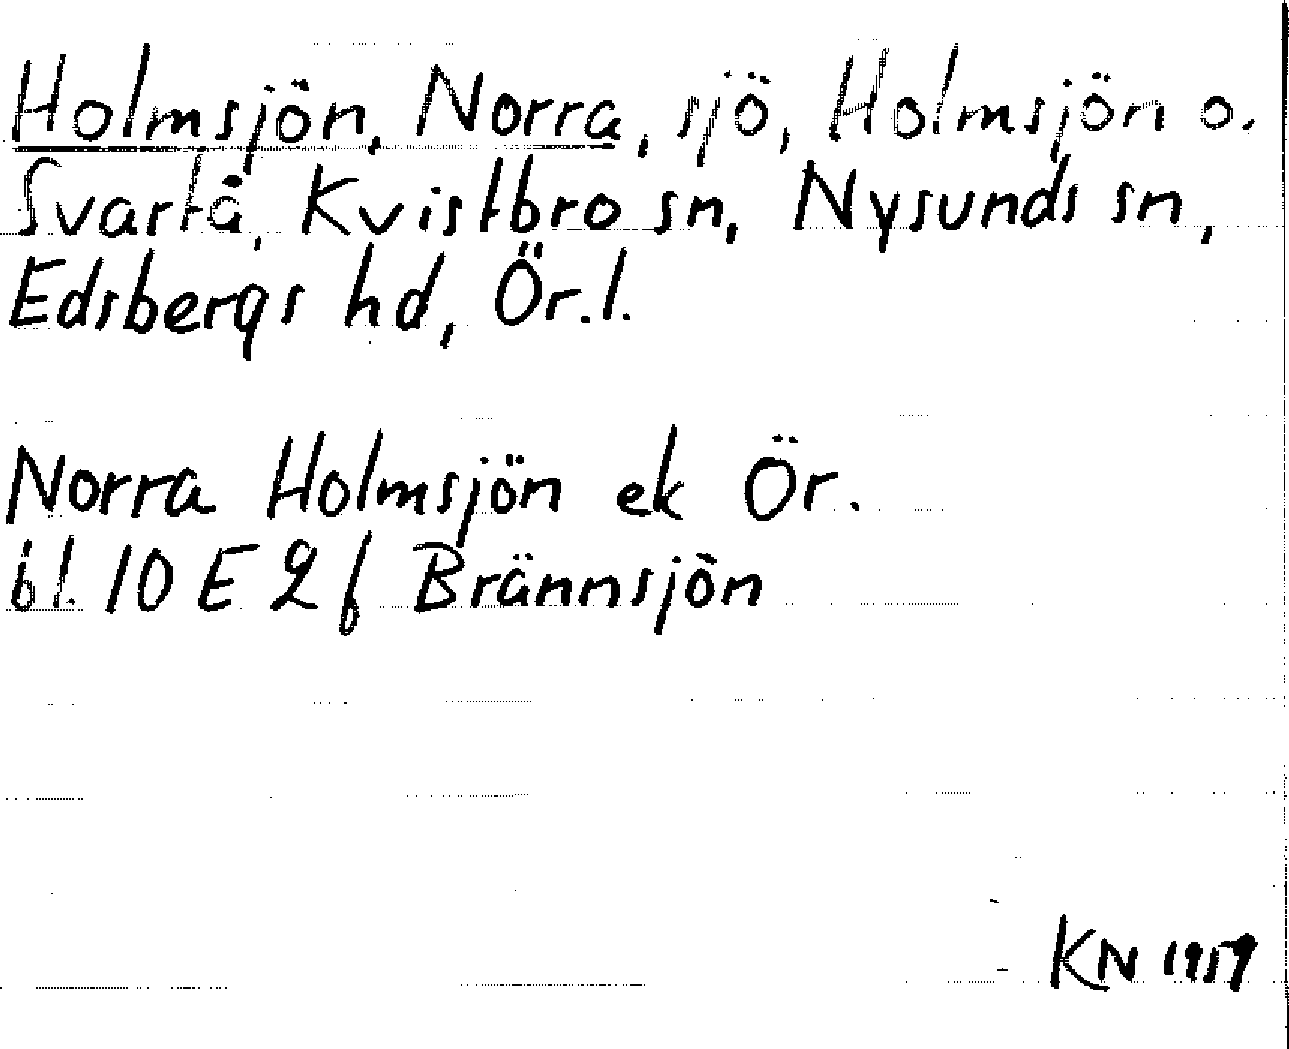 Holmsjön, Norra, sjö, Holmsjön o.
Svartå, Kvistbro sn, Nysunds sn,
Edsbergs hd, Ör.l.
Norra Holmsjön ek Ör.
bl. 10 E 2 f Brännsjön
KN 1959